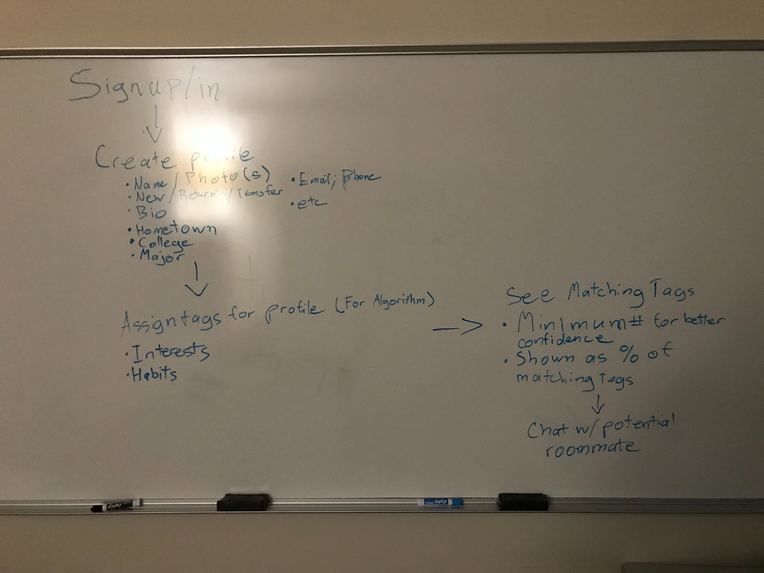 Signup/in
Create profile
• Name/Photo(s)
• New/Returning/Transfer
• Bio
• Hometown
• College
• Major
• Email; Phone
• etc
Assign tags for profile (For Algorithm)
• Interests
• Habits
See Matching Tags
• Minimum # for better
confidence
• Shown as % of
matching Tags
Chat w/ potential
roommate
EXPO
EXPO